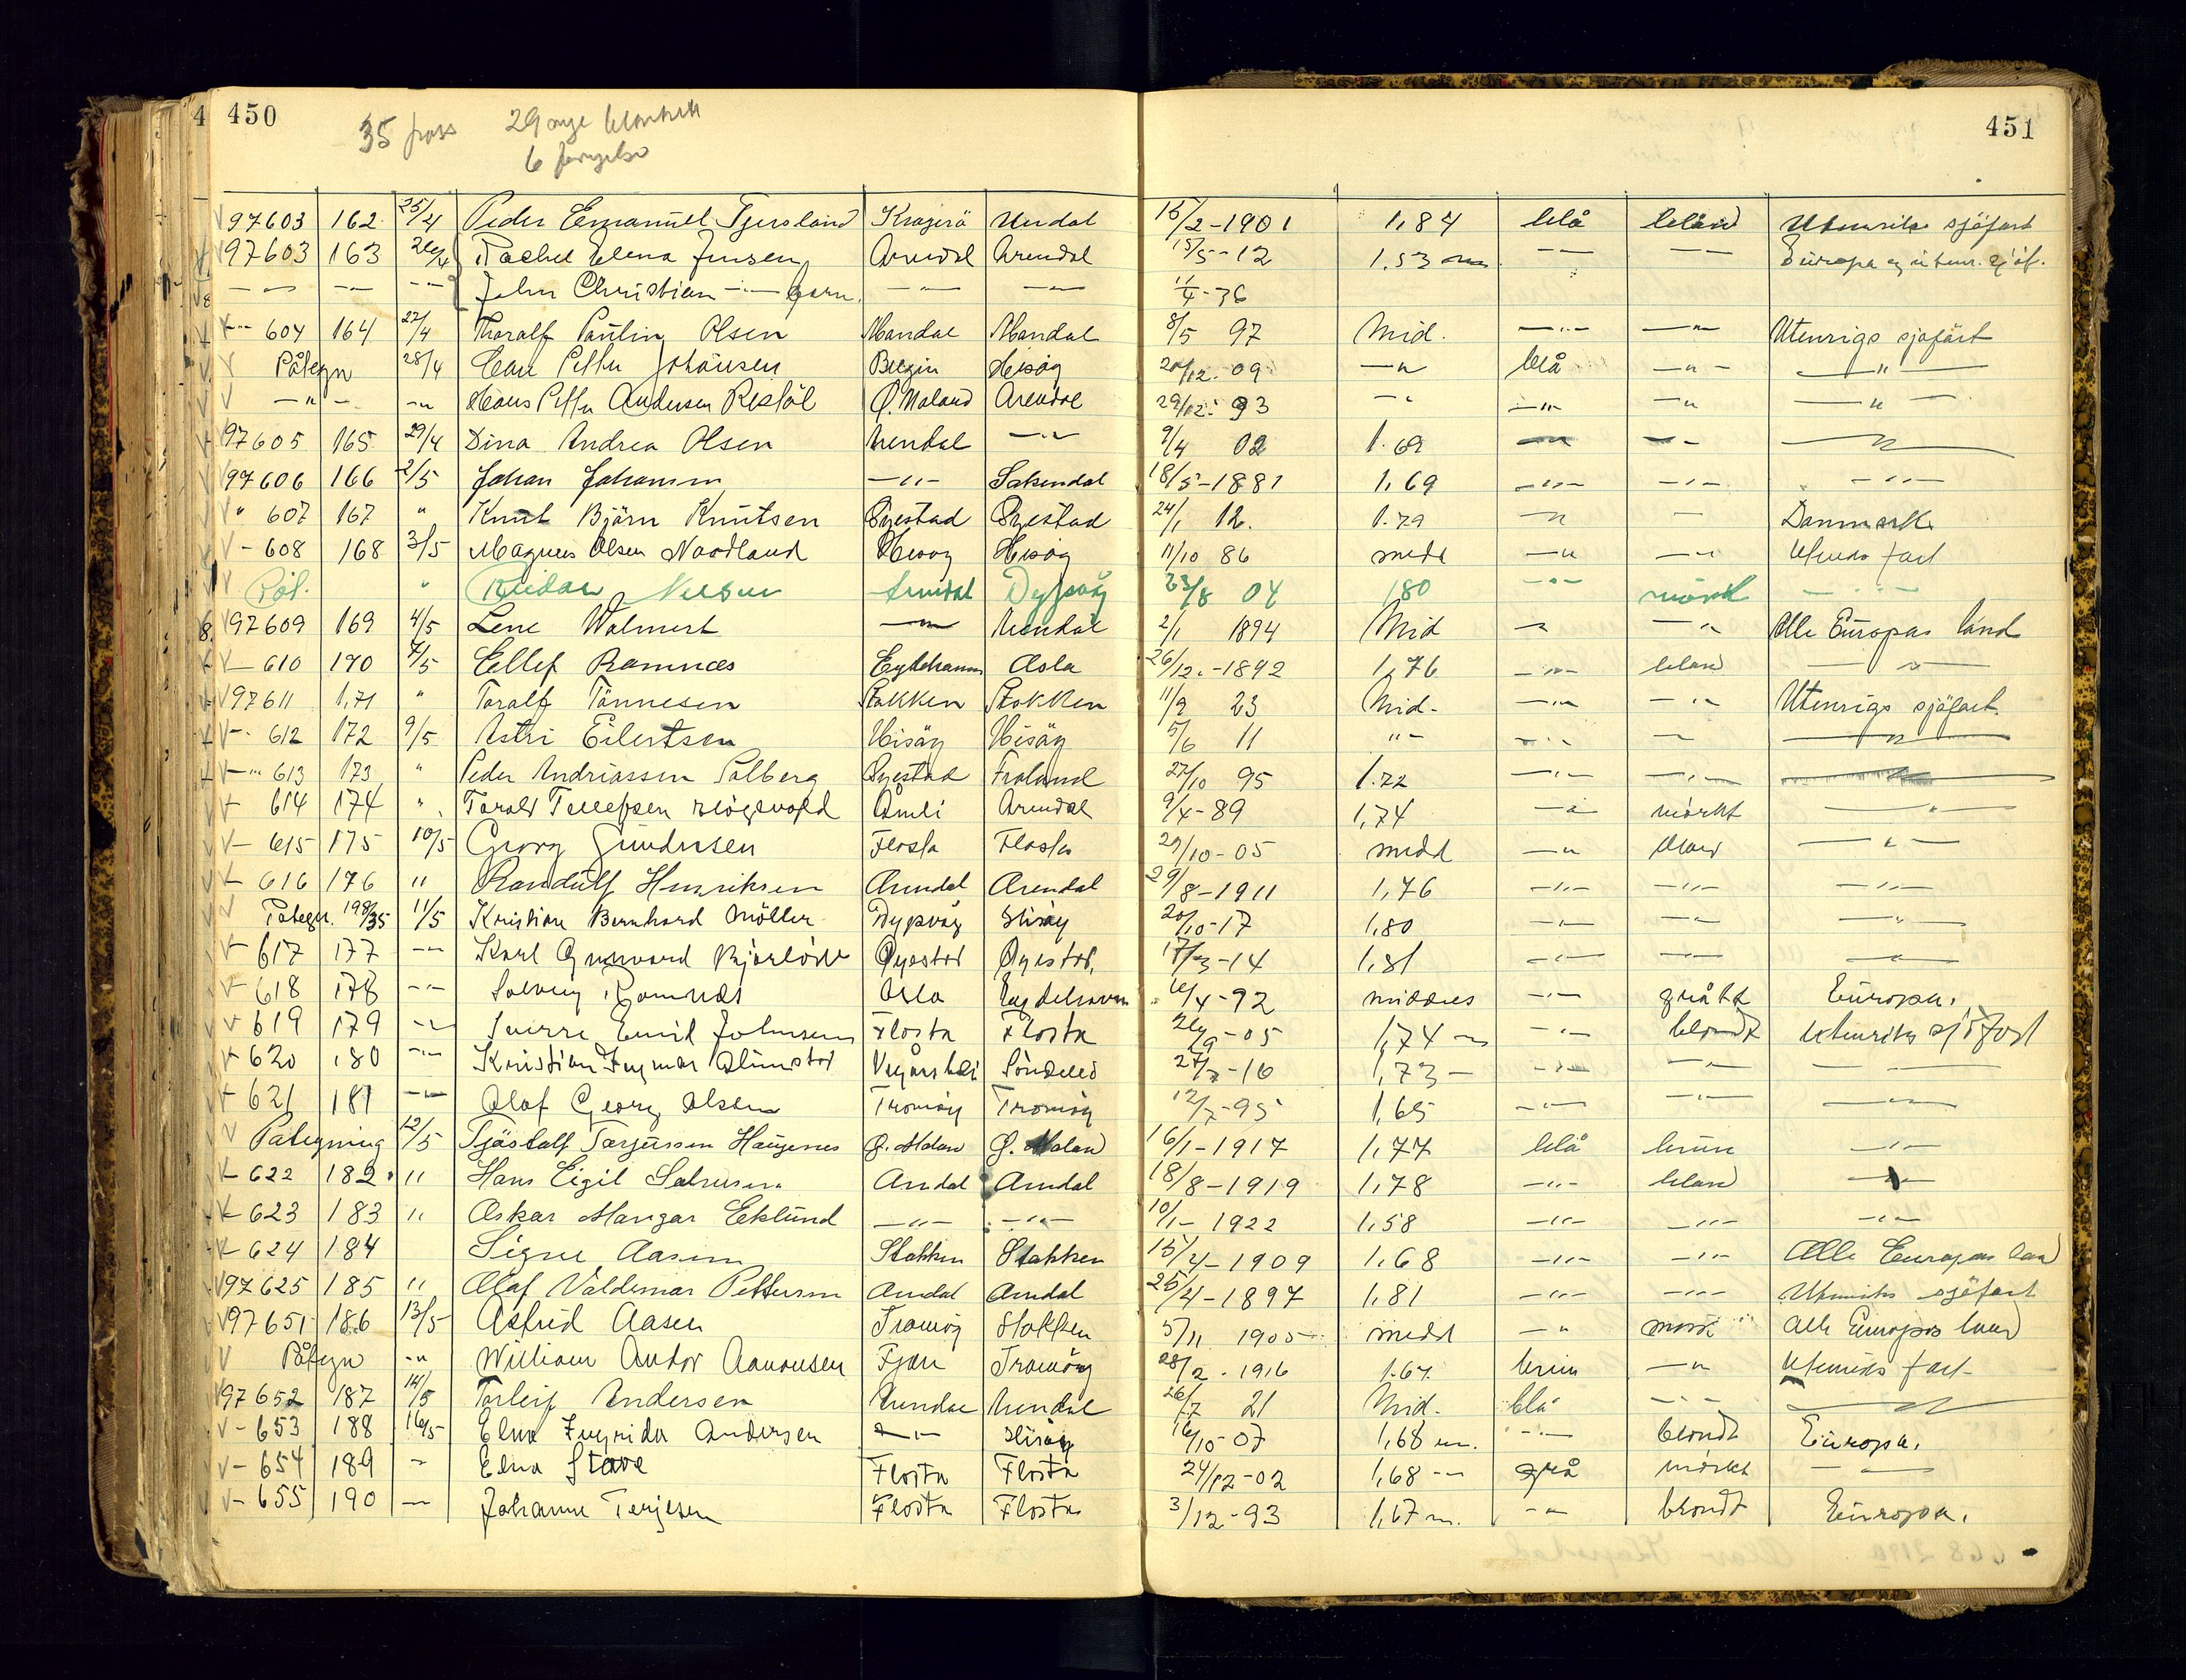 4 450 451
35 pass 29 nye blankett
6 fornyelse
V 97603 162 25/4 Peder Emanuel Tjersland Kragerö Arendal 15/2-1901 1,84 blå blond Utenriks sjöfart
V 97603 163 26/4 Rachel Elena Jensen Arendal Arendal 15/5-12 1.53 cm -"- -"- Europa og utenr. sjöf.
-"- -"- -"- John Christian -"- barn -"- -"- 11/4-36
V -"- 604 164 27/4 Thoralf Paulin Olsen Mandal Mandal 8/5 97 Mid. -"- -"- Utenrigs sjøfart
V Påtegn 28/4 Carl Petter Johansen Hisöy 20/12. 09 -"- blå -"- -"-
V -"- -"- Hans Petter Andersen Ö. Moland Arendal 29/12. 93 -"- -"- -"- -"-
V 97605 165 29/4 Dina Andrea Olsen Arendal -"- 9/4 02 1.69 -"- -"- -"-
V 97606 166 2/5 Johan Johansen -"- 18/5-1881 1,69 -"- -"- -"-
V " 607 167 " Knut Björn Knutsen Öyestad Öyestad 24/1 12. 1.79 -"- - Danmark
V - 608 168 3/5 Magnus Olsen Nordland Hisöy Hisöy 11/10 86 medd -"- -"- Utenriks fart
V Påt. " Reidar Nilsen Arendal Dypvåg 23/8 04 180 -"- mörk -"-
V 97609 169 4/5 Lene Walmert -"- Arendal 2/1 1894 Mid -"- -"- Alle Europas land
V - 610 170 7/5 Ellef Ramnæs Eydehavn Oslo 26/12.-1892 1,76 -"- blond -"-
V 97611 171 " Toralf Tönnesen Stokken Stokken 11/9 23 Mid- -"- -"- Utenrigs sjöfart.
V - 612 172 9/5 Astri Eilertsen Hisöy Hisöy 5/6 11 "- -"- -"- -"-
V -"- 613 173 " Peder Andreassen Solberg Öyestad Froland 27/10 95 1.72 -"- -"-
V 614 174 " Torolf Tellefsen Åmli Arendal 9/4-89 1,74 -"- mörkt -"-
V - 615 175 10/5 Georg Gundersen Flosta Flosta 29/10-05 medd -"- blond -"-
V - 616 176 " Randulf Henriksen Arendal Arendal 29/8-1911 1,76 -"- -"- -"-
V Påtegn. 198/35 11/5 Kristian Bernhard Möller Dypvåg Hisöy 20/10-17 1,80 -"- -"- -"-
V - 617 177 -"- Karl Gunvard Öyestad Öyestad, 17/3-14 1,81 -"- -"- -"-
V - 618 178 -"- Solveig Ramnæs Oslo Eydehavn 6/4-92 middels -"- grått Europa.
V - 619 179 -"- Sverre Emil Johnsen Flosta Flosta 26/9-05 1,74 m -"- blondt Utenriks sjöfart
V - 620 180 -"- Kristian Ingmar Vegårshei Söndeled 27/7-16 1,73 - -"- -"- -"-
V - 621 181 -"- Olaf Georg Olsen Tromöy Tromöy 12/7-95 1,65 -"- -"- -"-
V Påtegning 12/5 Tjöstolf Terjersen Haugenes Ö. Moland Ö. Moland 16/1-1917 1,77 blå brun -"-
V - 622 182 " Hans Eigil Arendal Arendal 18/8-1919 1,78 -"- blond -"-
V - 623 183 " Oskar Mangar Eklund -"- -"- 10/1-1922 1,58 -"- -"- -"-
V - 624 184 Signe Aasen Stokken Stokken 15/4-1909 1,68 -"- -"- Alle Europas land
V 97625 185 " Olaf Valdemar Pettersen Arendal Arendal 25/4-1897 1,81 -"- -"- Utenriks sjöfart
V 97651 186 13/5 Astrid Aasen Tromöy Stokken 5/11 1905 medd -"- mörk Alle Europas land
V Påtegn -"- William Andor Aanonsen Fjære Tromöy 28/2. 1916 1.67. brun -"- Utenriks fart
V 97652 187 14/5 Torleif Andersen Arendal Arendal 26/7 21 Mid. blå -"- -"-
V - 653 188 16/5 Elna Ingrida Andersen -"- Hisöy 16/10-07 1,68 m. -"- blondt Europa.
V - 654 189 - Elna Stave Flosta Flosta 24/12-02 1,68 -"- grå mörkt -"-
V - 655 190 -"- Johanne Terjesen Flosta Flosta 3/12-93 1,67 m. -"- blondt Europa.